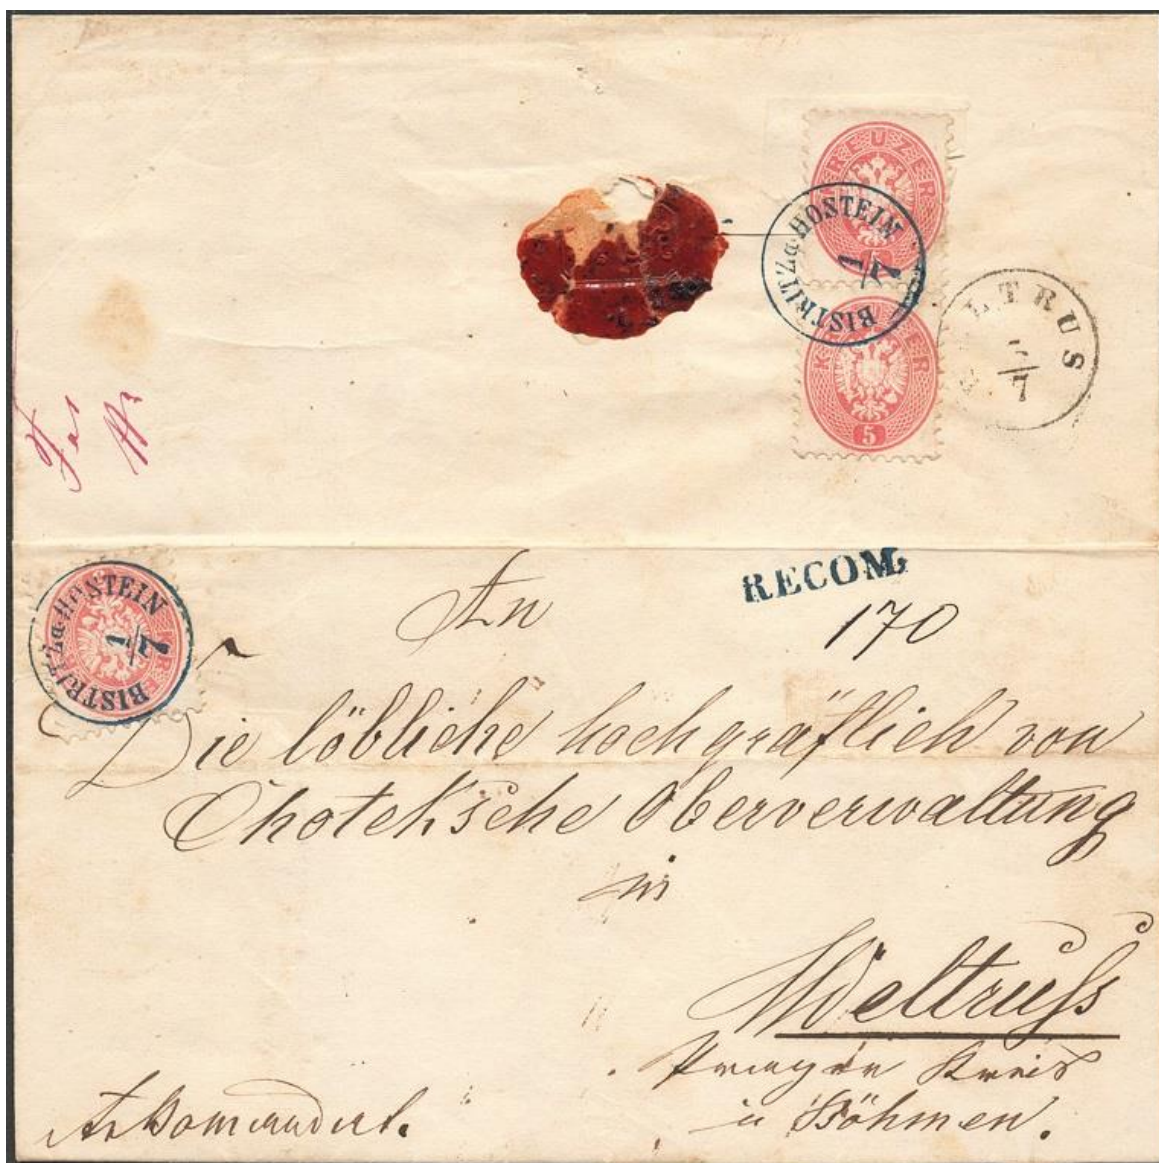 KREUZER
BISTRITZ a. HOSTEIN
1/7
KREUZER
5
LTRUS
7
BISTRITZ a. HOSTEIN
1/7
RECOM.
An
170
Die löbliche hochgräflich von
Chotek'sche Oberverwaltung
in
Weltruss
Prager Kreis
in Böhmen.